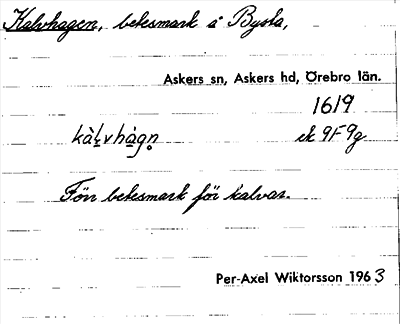 Kalvhagen, betesmark å Bysta,
Askers sn, Askers hd, Örebro län.
1619
kàl̠vhàgn̥ ek 9F9g
Förr betesmark för kalvar.
Per-Axel Wiktorsson 1963